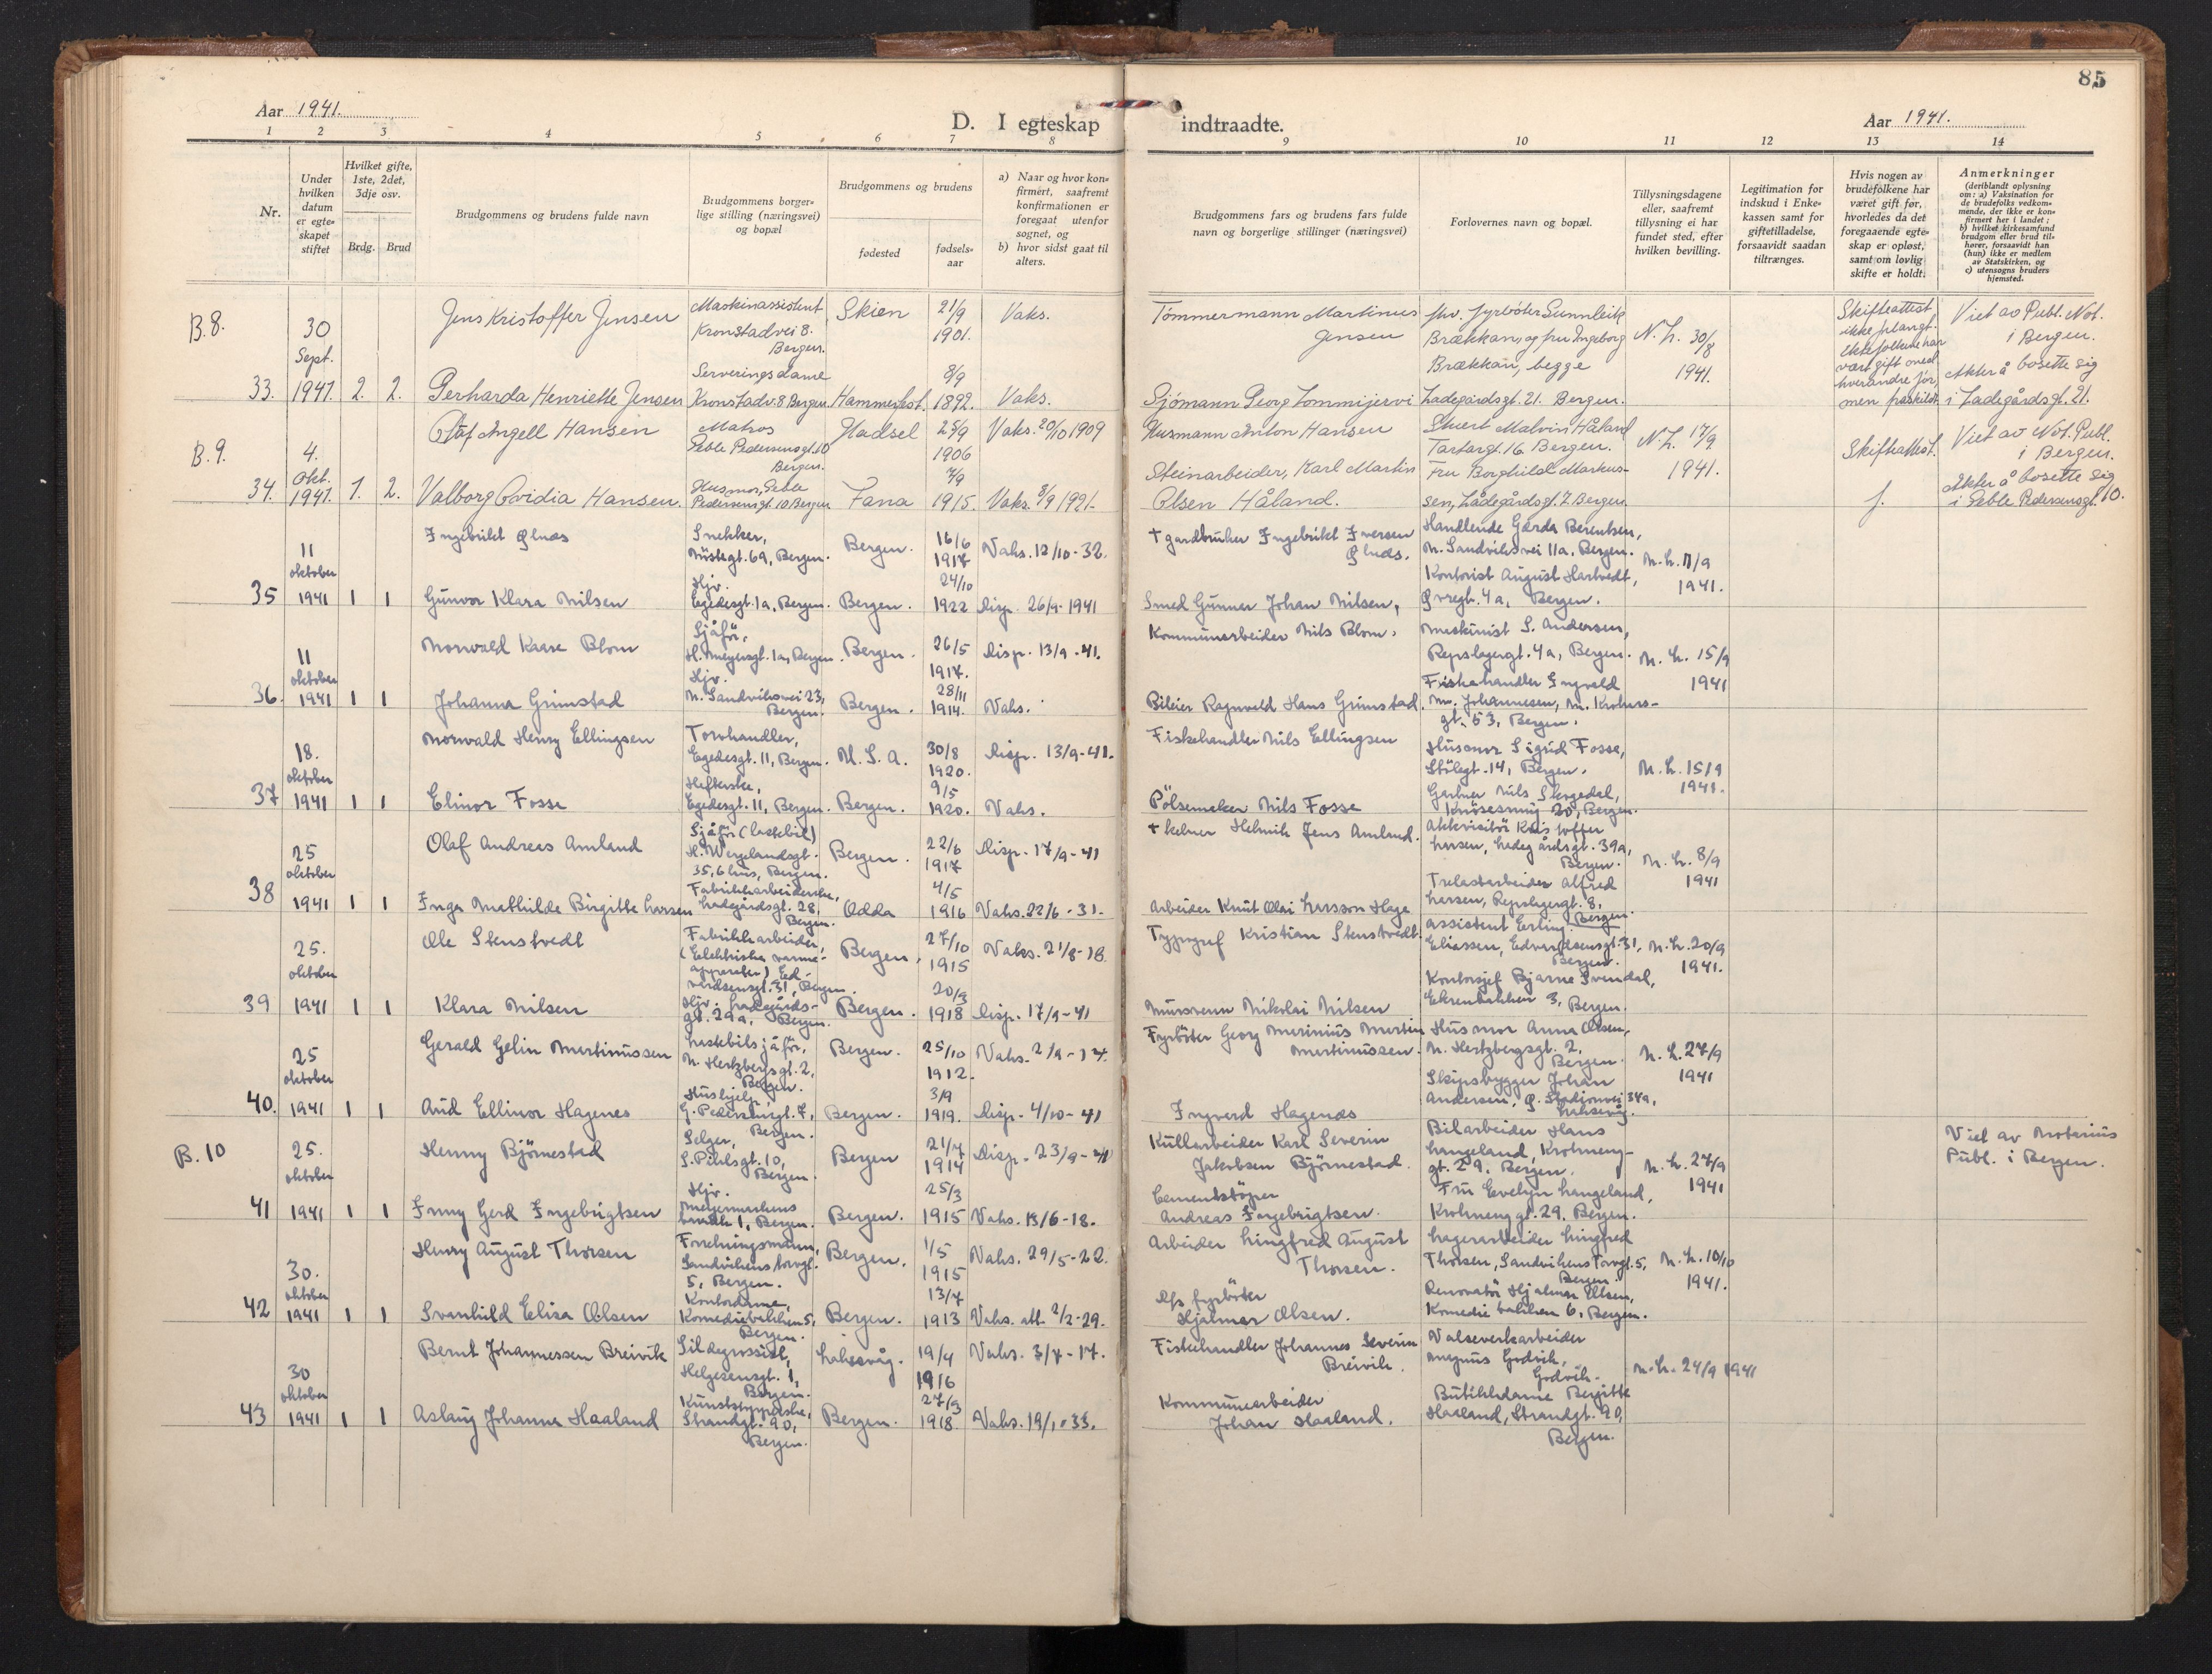 85
Aar 1941.
D. I egteskap indtraadte.
Aar 1941.
1 2 3 4 5 6 7 8 9 10 11 12 13 14
Nr.
Under hvilken datum er egteskapet stiftet
Hvilket gifte, 1ste, 2det, 3dje osv.
Brdg. Brud
Brudgommens og brudens fulde navn
Brudgommens borgerlige stilling (næringsvei) og bopæl
Brudgommens og brudens
fødested
fødselsaar
a) Naar og hvor konfirmert, saafremt konfirmationen er foregaat utenfor sognet, og
b) hvor sidst gaat til alters.
Brudgommens fars og brudens fars fulde navn og borgerlige stillinger (næringsvei)
Forlovernes navn og bopæl.
Tillysningsdagene eller, saafremt tillysning ei har fundet sted, efter hvilken bevilling.
Legitimation for indskud i Enkekassen samt for giftetilladelse, forsaavidt saadan tiltrænges.
Hvis nogen av brudefolkene har været gift før, hvorledes da det foregaaende egteskap er opløst, samt om lovlig skifte er holdt.
Anmerkninger
(deriblandt oplysning om: a) Vaksination for de brudefolks vedkommende, der ikke er konfirmert her i landet; b) hvilket kirkesamfund brudgom eller brud tilhører, forsaavidt han (hun) ikke er medlem av Statskirken, og c) utensogns bruders hjemsted.
B.8.
33.
30 Sept. 1941. 2. 2.
Jens Kristoffer Jensen
Maskinassistent Kronstadvei 8. Bergen.
Skien 21/9 1901. Vaks.
Tømmermann Martinus Jensen
fhv. fyrbøter Gunnleik Brækkan, og fru Ingeborg Brækkan, begge Ladegårdsgt. 21. Bergen.
N. L. 30/8 1941.
Skifteattest ikke forlangt. Ektefolkene har vært gift med hverandre før, men fraskildt.
Viet av Publ. Not. i Bergen.
Akter å bosette sig i Ladegårdsgt. 21.
Gerharda Henriette Jensen
Serveringsdame Kronstadv. 8 Bergen.
Hammerfest. 8/9 1892. Vaks.
Sjömann Georg Tommijervi
B.9.
34.
4. Okt. 1941. 1. 2.
Olaf Angell Hansen
Matros Peble Pedersensgt. 10 Bergen.
Hadsel 25/9 1906 Vaks. 20/10 1909
Husmann Anton Hansen
Stuert Malvin Håland Tartargt. 16. Bergen.
N. L. 17/9 1941.
Skifteattest.
Viet av Not. Publ. i Bergen.
Valborg Ovidia Hansen.
Husmor, Peble Pedersensgt. 10 Bergen
Fana 7/9 1915. Vaks. 8/9 1921.
Steinarbeider, Karl Martin Olsen Håland.
Fru Borghild Markussen, Ladegårdsgt. 7. Bergen.
f.
Akter å bosette sig i Peble Pedersensgt. 10.
35
11 oktober 1941 1 1
Ingebrikt
Snekker, Nöstegt. 69, Bergen.
Bergen. 16/6 1917 Vaks. 12/10-32.
† gardbruker Ingebrikt Iversen
Handlende Gerda Berentsen, N. Sandviksvei 11a, Bergen.
N. L. 11/9 1941.
Gunvor Klara Nilsen
Hjv. Egedesgt. 1a, Bergen.
Bergen. 24/10 1922 Disp. 26/9-1941
Smed Gunnar Johan Nilsen,
Kontorist August Hartvedt, Bergen.
36.
11 oktober 1941 1 1
Norvald Kaare Blom
Sjåför, H. Meyersgt. 1a, Bergen.
Bergen. 26/5 1917. Disp. 13/9-41.
Kommunearbeider Nils Blom.
Maskinist S. Andersen, Repslagergt. 4a, Bergen.
N. L. 15/9 1941
Johanna Grimstad
Hjv. N. Sandviksvei 23, Bergen.
Bergen. 28/11 1914. Vaks.
Bileier Ragnvald Hans Grimstad.
Fiskehandler Ingvald M. Johannesen, M. Krohnsgt. 53, Bergen.
37
18. oktober 1941 1 1
Norvald Henry Ellingsen
Torvhandler, Egedesgt. 11, Bergen.
U. S. A. 30/8 1920. Disp. 13/9-41.
Fiskehandler Nils Ellingsen
Husmor Sigrid Fosse, Stölegt. 14, Bergen.
N. L. 15/9 1941.
Elinor Fosse
Hefterske, Egedesgt. 11, Bergen.
Bergen. 9/5 1920. Vaks.
Pölsemaker Nils Fosse
Gartner Nils Skogedal, Knösesmug 20, Bergen.
38
25 oktober 1941 1 1
Olaf Andreas Amland
Sjåför (lastebil) H. Wergelandsgt. 35, 6 hus, Bergen.
Bergen. 22/6 1917 Disp. 17/9-41
† kelner Helmik Jens Amland.
Akkvisitör Kristoffer Larsen, Ladegårdsgt. 39a, Bergen.
N. L. 8/9 1941
Inga Mathilde Birgitte Larsen
Fabrikkarbeiderske, Ladegårdsgt. 28, Bergen.
Odda 4/5 1916 Vaks. 22/6-31.
Arbeider Knut Olai Larsson Hage
Trelastarbeider Alfred Larsen, Repslagergt. 8, Bergen.
39
25. oktober 1941 1 1
Ole Stenstvedt
Fabrikkarbeider, (Elektriske varmeapparater) Edvardsensgt. 31, Bergen.
Bergen. 27/10 1915 Vaks. 21/8-18.
Typograf Kristian Stenstvedt
Assistent Erling Eliassen, Edvardsensgt. 31, Bergen.
N. L. 20/9 1941.
Klara Nilsen
Hjv. Ladegårdsgt. 29a, Bergen.
Bergen. 20/3 1918 Disp. 17/9-41
Mursvenn Nikolai Nilsen
Kontorsjef Bjarne Svendal, Ekrenbakken 3, Bergen.
40.
25 oktober 1941 1 1
Gerald Gelin Martinussen
Lastebilsjåför, N. Hertzbergsgt. 2, Bergen.
Bergen. 25/10 1912. Vaks. 2/9-14.
Fyrböter Georg Marinius Martin Martinussen.
Husmor Anna Olsen, N. Hertzbergsgt. 2, Bergen.
N. L. 27/9 1941
Aud Ellinor Hagenes
Hushjelp, Bergen.
Bergen. 3/9 1919. Disp. 4/10-41
Ingvard Hagenæs
Skipsbygger Johan Andersen, Stadionvei 34a, Laksevåg.
B. 10
41
25. oktober 1941 1 1
Henny Björnestad
Selger, S. Pihlsgt. 10, Bergen.
Bergen 21/7 1914 Disp. 23/9-41
Kullarbeider Karl Severin Jakobsen Björnestad.
Bilarbeider Hans Langeland, Krohnenggt. 29, Bergen.
N. L. 27/9 1941
Viet av Notarius Publ. i Bergen.
Inny Gerd Ingebrigtsen
Hjv. Meyermarkens 1, Bergen.
Bergen. 25/3 1915 Vaks. 13/6-18.
Cementstöper Andreas Ingebrigtsen.
Fru Evelyn Langeland, Krohnenggt. 29. Bergen.
42
30. oktober 1941 1 1
Henry August Thorsen
Forretningsmann, Sandvikens torvgt. 5, Bergen.
Bergen. 1/5 1915 Vaks. 29/5-22.
Arbeider Lingfred August Thorsen.
Lagerarbeider Lingfred Thorsen, Sandvikens Torvgt. 5, Bergen.
N. L. 10/10 1941.
Svanhild Elisa Olsen
Kontordame, Komediebakken 5, Bergen.
Bergen. 13/7 1913 Vaks. att. 2/2-29.
fyrböter Hjalmar Olsen.
Renovatör Hjalmar Olsen, Komediebakken 6, Bergen.
43
30 oktober 1941 1 1
Bernt Johannessen Breivik
Sildegrossist, Helgesensgt. 1, Bergen.
Laksevåg. 19/4 1916 Vaks. 3/7-17.
Fiskehandler Johannes Severin Breivik.
Valseverkarbeider Magnus Godvik, Godvik.
N. L. 24/9 1941
Aslaug Johanna Haaland
Kunststopperske, Strandgt. 90, Bergen.
Bergen. 27/3 1918. Vaks. 19/1-33.
Kommunearbeider Johan Haaland.
Butikkdame Bergitte Haaland, Strandgt. 90, Bergen.